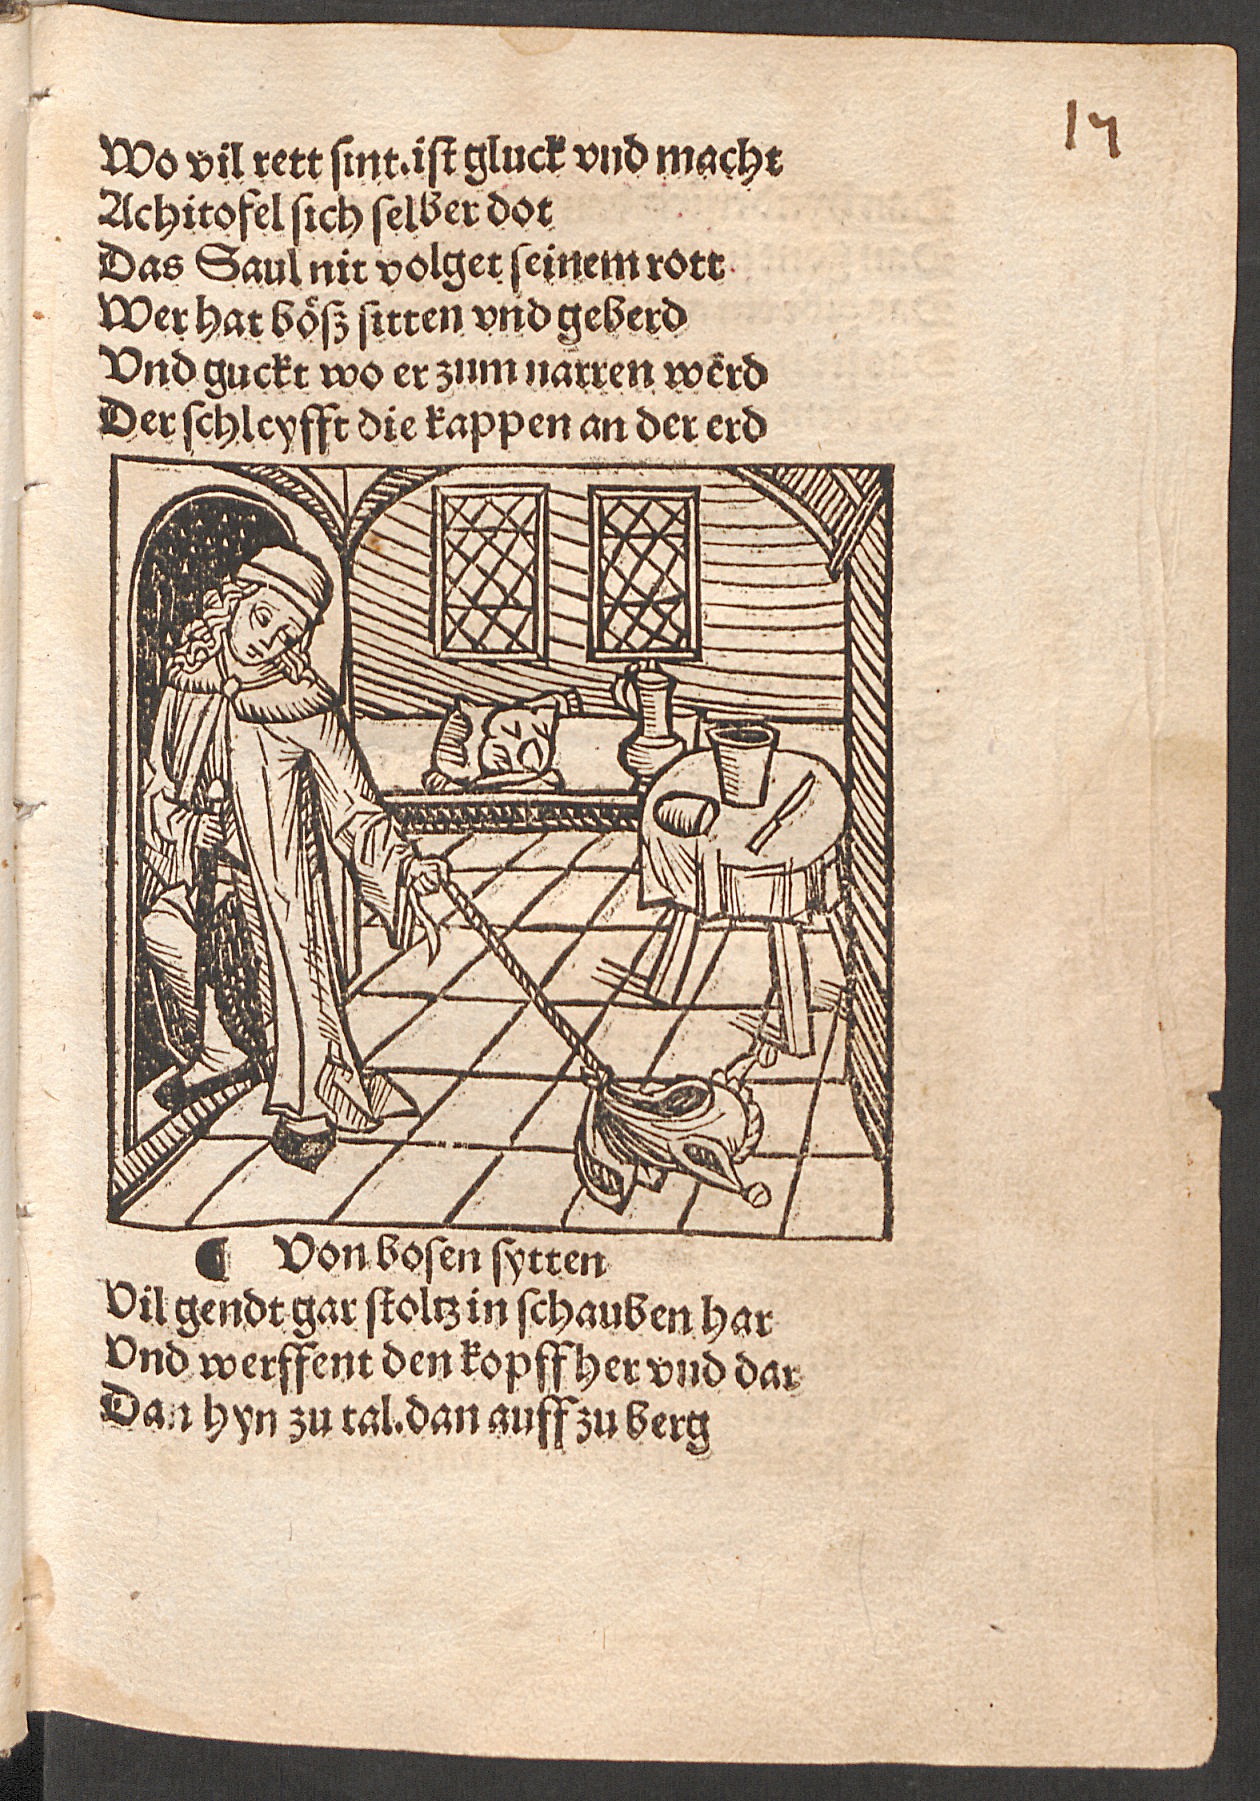 17
Wo vil rett sint.ist gluck vnd macht
Achitofel sich selber dot
Das Saul nit volget seinem rott
Wer hat bo̎ſz sitten vnd geberd
Vnd guckt wo er zum narren we̎rd
Der ſchleyfft die kappen an der erd
¶ Von bosen sytten
Vil gendt gar ſtoltz in ſchauben har
Vnd werffent den kopff her vnd dar
Dan hyn zu tal.dan auff zu berg